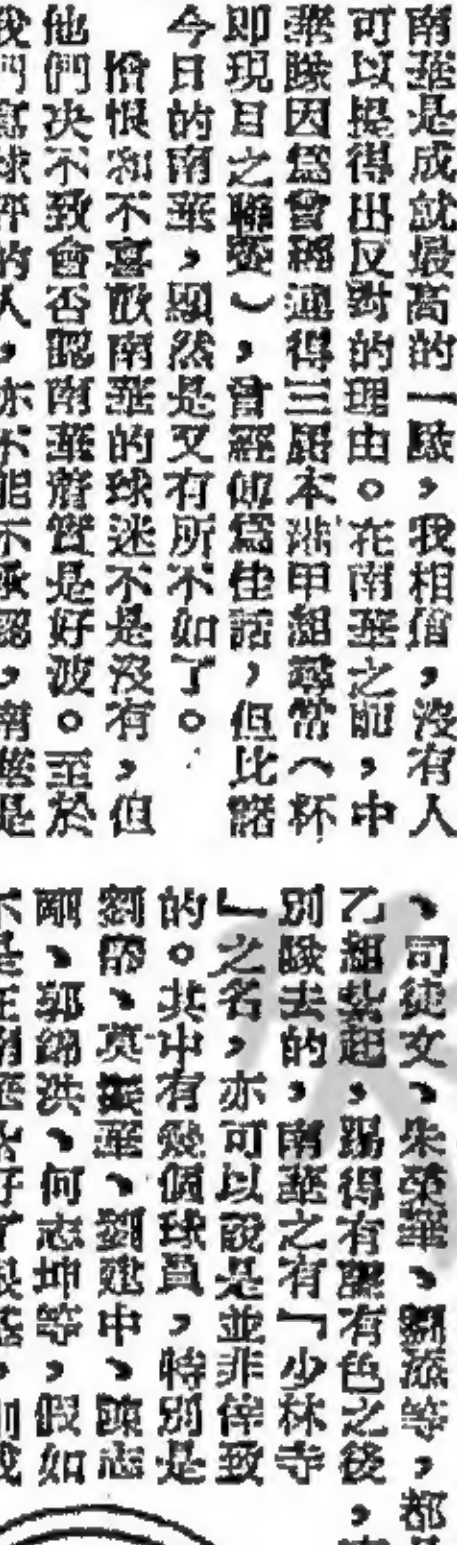 南華是成就最高的一隊，我相信，沒有人
可以提得出反對的理由。在南華之前，中
華隊因為曾稱連得三屆本港甲組尋常（杯
即現目之聯賽），曾經傳為佳話，但比諸
今日的南華，顯然是又有所不如了。
憎恨和不喜歡南華的球迷不是沒有，但
他們決不致會否認南華詹質是好波。至於
我們寫球評的人，亦不能不承認，南華是
、司徒文、朱榮華、劉添等，都
乙組紮起，踢得有聲有色之後，
別隊去的，南華之有『少林寺
』之名，亦可以說是並非倖致
的。其中有幾個球員，特別是
劉帝、莫振華、劉建中、陳志
剛、郭錦洪、何志坤等，假如